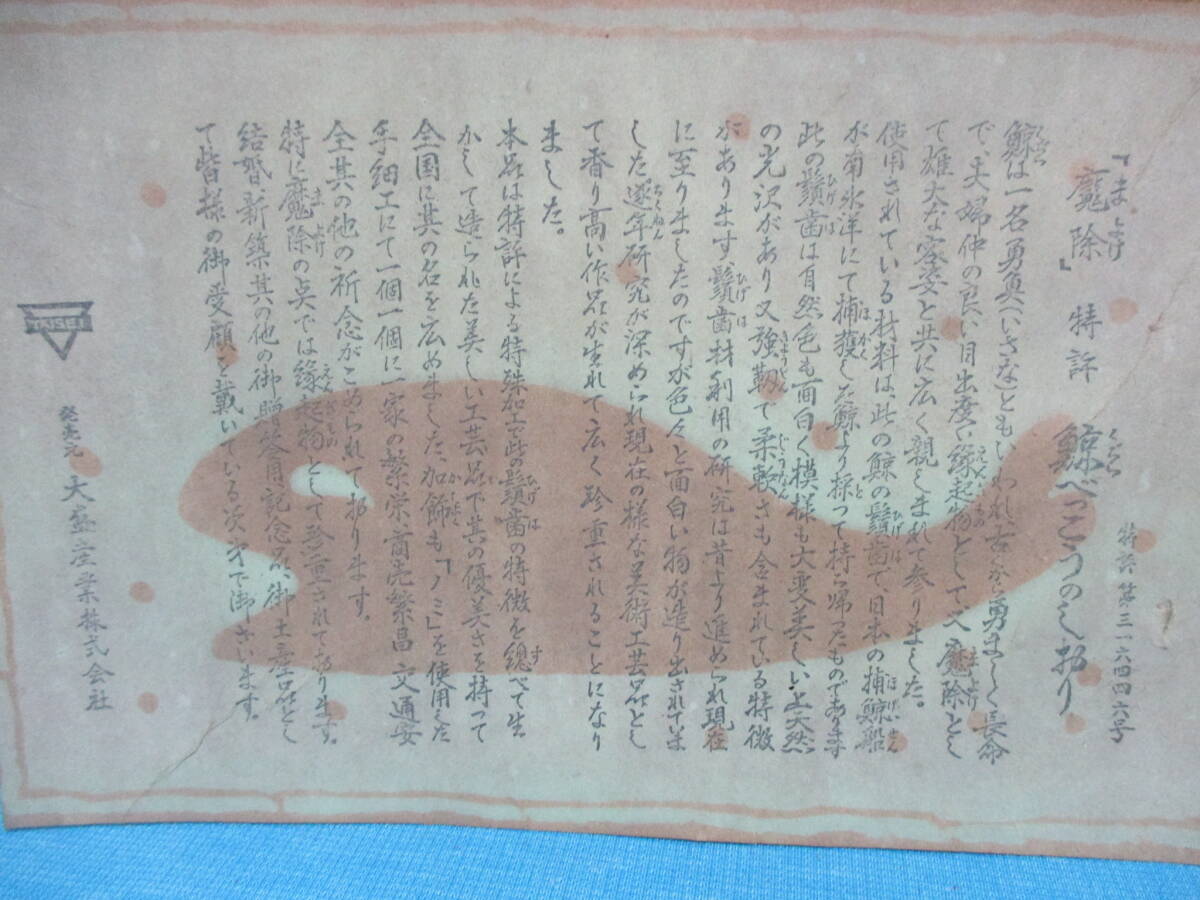 特許第三一六四四六号
『魔除』特許 鯨べっこうのしおり
鯨は一名勇魚(いさな)ともいわれ、古から勇ましく長命
で、夫婦仲の良い目出度い縁起物として又魔除とし
て雄大な容姿と共に広く親しまれて参りました。
使用されている材料は、此の鯨の鬚歯で、日本の捕鯨船
が南氷洋にて捕獲した鯨より採って持ち帰ったものであります
此の鬚歯は自然色も面白く模様も大変美しい上天然
の光沢があり又強靭で柔軟さも含まれている特徴
があります、鬚歯材利用の研究は昔より進められ現在
に至りましたのですが色々と面白い物が造り出されていま
した逐年研究が深められ現在の様な美術工芸品とし
て香り高い作品が生れて広く珍重されることになり
ました。
本品は特許による特殊加工で此の鬚歯の特徴を総べて生
かして造られた美しい工芸品で其の優美さを持って
全国に其の名を広めました、加飾も「ノミ」を使用した
手細工にて一個一個に一家の繁栄商売繁昌交通安
全其の他の祈念がこめられて居ります。
特に魔除の点では縁起物として珍重されて居ります。
結婚新築其の他の御贈答用記念品、御土産品とし
て皆様の御愛顧を戴いている次才で御ざいます。
発売元 大盛産業株式会社
TAISEI